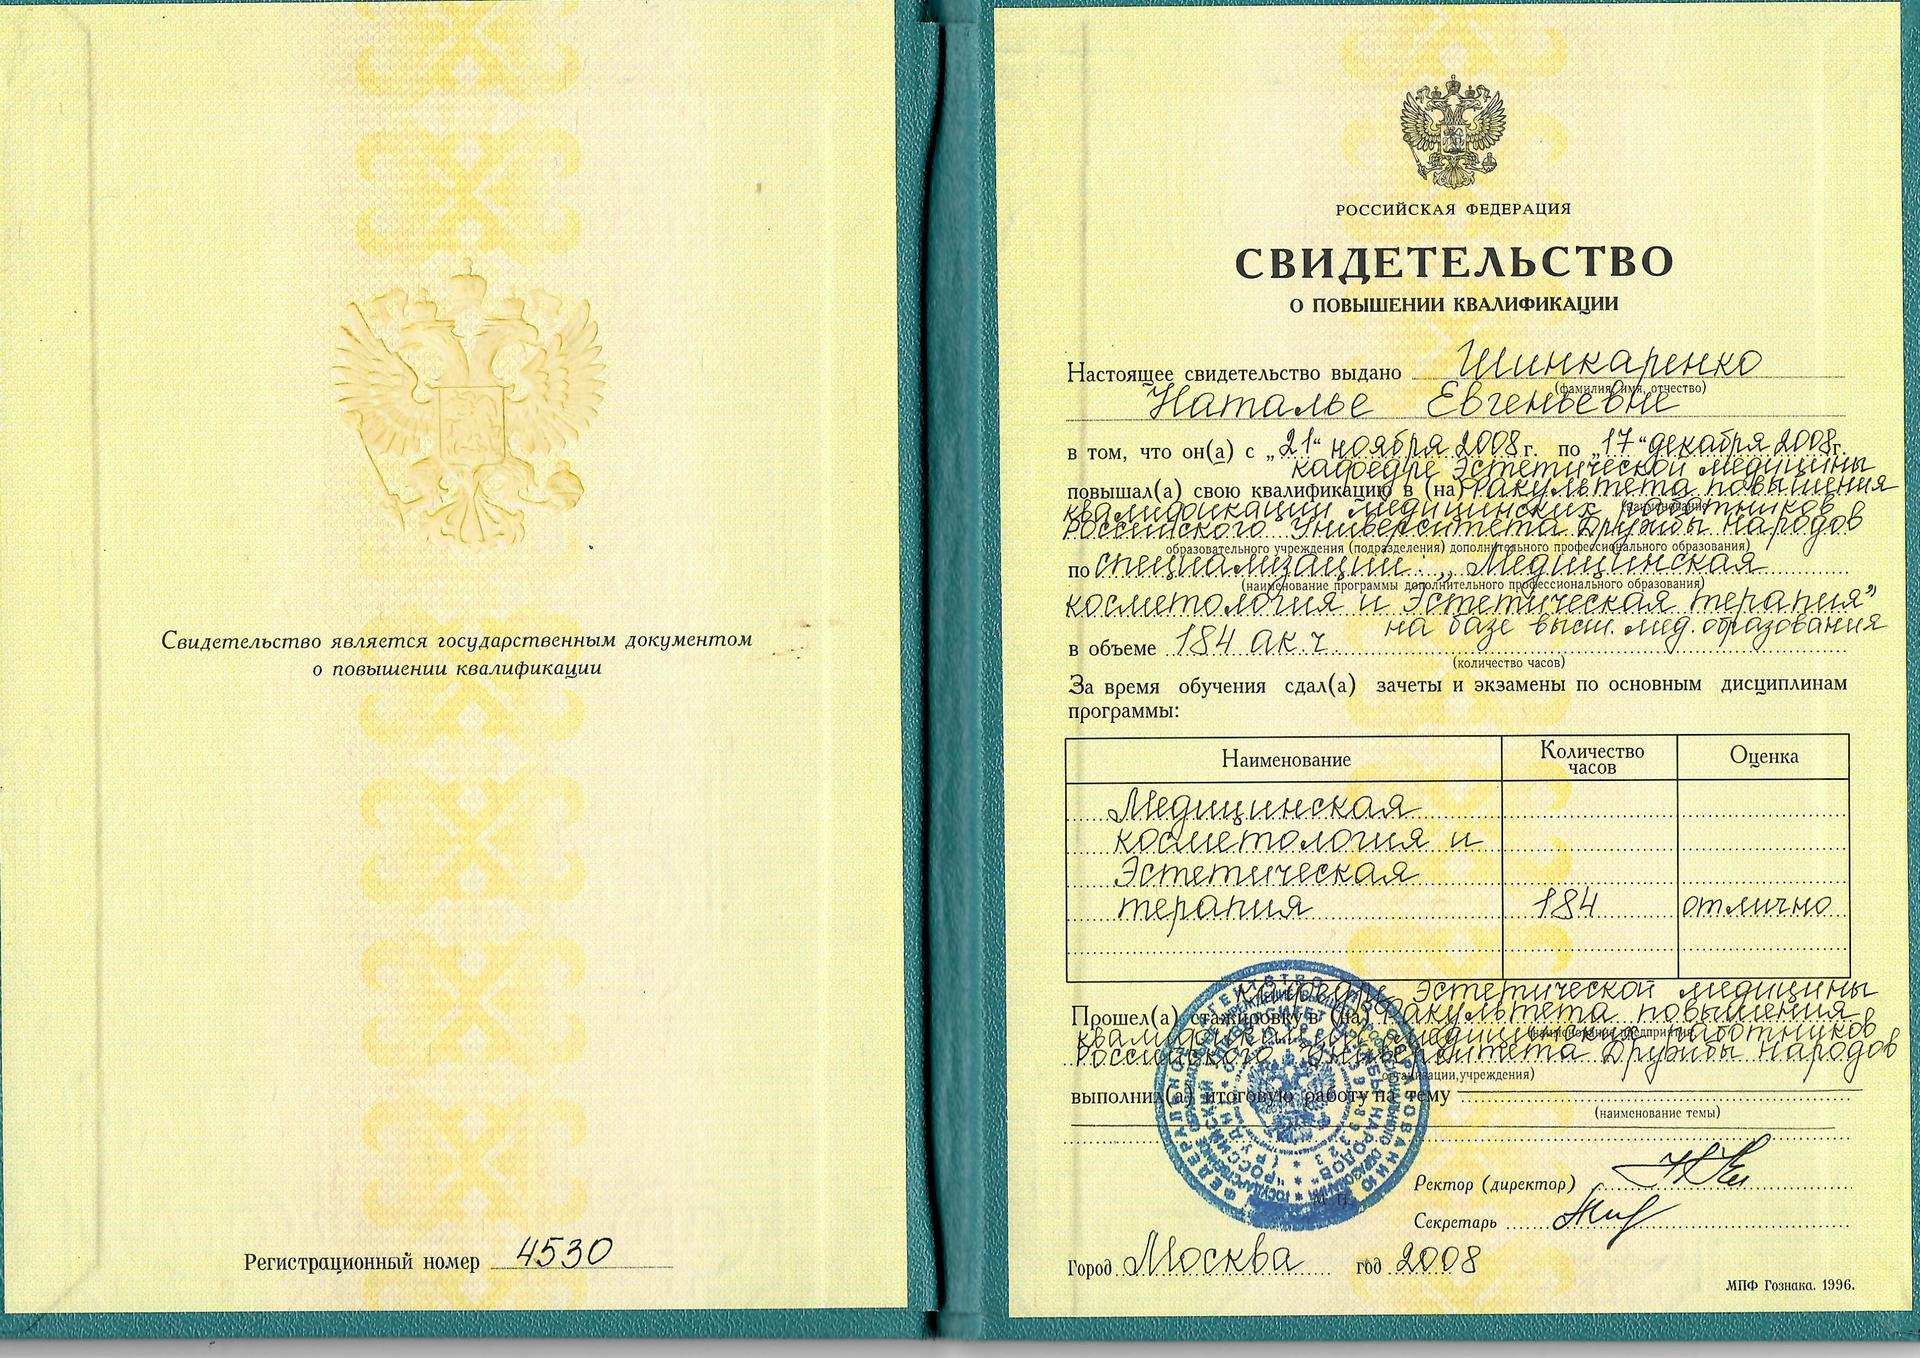 Свидетельство является государственным документом
о повышении квалификации
Регистрационный номер 4530
РОССИЙСКАЯ ФЕДЕРАЦИЯ
СВИДЕТЕЛЬСТВО
О ПОВЫШЕНИИ КВАЛИФИКАЦИИ
Настоящее свидетельство выдано Шинкаренко
(фамилия, имя, отчество)
Наталье Евгеньевне
в том, что он(а) с „21“ ноября 2008 г. по „17“ декабря 2008 г.
кафедре Эстетической медицины
повышал(а) свою квалификацию в (на) факультета повышения
(наименование
квалификации медицинских работников
Российского Университета Дружбы Народов
образовательного учреждения (подразделения) дополнительного профессионального образования)
по специализации: „Медицинская
(наименование программы дополнительного профессионального образования)
косметология и Эстетическая терапия”
на базе высш. мед. образования
в объеме 184 ак.ч.
(количество часов)
За время обучения сдал(а) зачеты и экзамены по основным дисциплинам
программы:
Наименование Количество часов Оценка
Медицинская
косметология и
Эстетическая
терапия 184 отлично
кафедре Эстетической медицины
Прошел(а) стажировку в (на) факультета повышения
(наименование предприятия,
квалификации медицинских работников
Российского Университета Дружбы Народов
организации, учреждения)
выполнил(а) итоговую работу на тему
(наименование темы)
Ректор (директор)
Секретарь
Город Москва год 2008
МПФ Гознака. 1996.